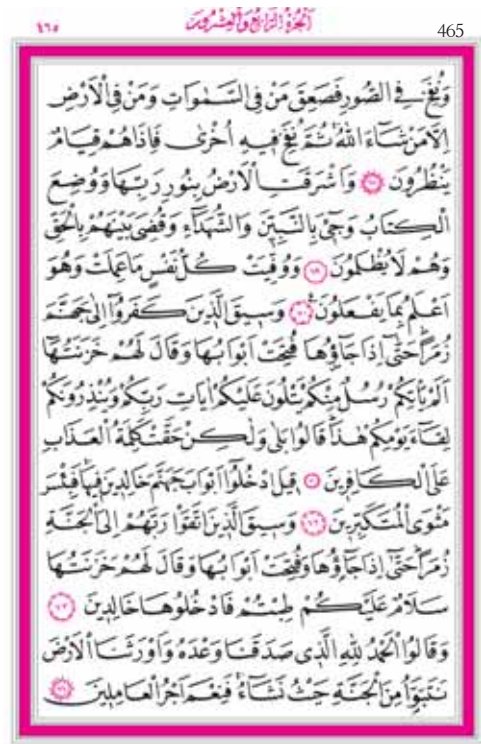 ٤٦٥ اَلْجُزْءُ الرَّابِعُ وَالْعِشْرُونَ 465
وَنُفِخَ فِي الصُّورِ فَصَعِقَ مَنْ فِي السَّمٰوَاتِ وَمَنْ فِي الْاَرْضِ
اِلَّا مَنْ شَٓاءَ اللّٰهُ ثُمَّ نُفِخَ فٖيهِ اُخْرٰى فَاِذَا هُمْ قِيَامٌ
يَنْظُرُونَ ﴿٦٨﴾ وَاَشْرَقَتِ الْاَرْضُ بِنُورِ رَبِّهَا وَوُضِعَ
الْكِتَابُ وَجٖٓيءَ بِالنَّبِيّٖنَ وَالشُّهَدَٓاءِ وَقُضِيَ بَيْنَهُمْ بِالْحَقِّ
وَهُمْ لَا يُظْلَمُونَ ﴿٦٩﴾ وَوُفِّيَتْ كُلُّ نَفْسٍ مَا عَمِلَتْ وَهُوَ
اَعْلَمُ بِمَا يَفْعَلُونَ ﴿٧٠﴾ وَسٖيقَ الَّذٖينَ كَفَرُٓوا اِلٰى جَهَنَّمَ
زُمَرًا حَتّٰٓى اِذَا جَٓاؤُ۫هَا فُتِحَتْ اَبْوَابُهَا وَقَالَ لَهُمْ خَزَنَتُهَٓا
اَلَمْ يَأْتِكُمْ رُسُلٌ مِنْكُمْ يَتْلُونَ عَلَيْكُمْ اٰيَاتِ رَبِّكُمْ وَيُنْذِرُونَكُمْ
لِقَٓاءَ يَوْمِكُمْ هٰذَا قَالُوا بَلٰى وَلٰكِنْ حَقَّتْ كَلِمَةُ الْعَذَابِ
عَلَى الْكَافِرٖينَ ﴿٧١﴾ قٖيلَ ادْخُلُٓوا اَبْوَابَ جَهَنَّمَ خَالِدٖينَ فٖيهَا فَبِئْسَ
مَثْوَى الْمُتَكَبِّرٖينَ ﴿٧٢﴾ وَسٖيقَ الَّذٖينَ اتَّقَوْا رَبَّهُمْ اِلَى الْجَنَّةِ
زُمَرًا حَتّٰٓى اِذَا جَٓاؤُ۫هَا وَفُتِحَتْ اَبْوَابُهَا وَقَالَ لَهُمْ خَزَنَتُهَا
سَلَامٌ عَلَيْكُمْ طِبْتُمْ فَادْخُلُوهَا خَالِدٖينَ ﴿٧٣﴾
وَقَالُوا الْحَمْدُ لِلّٰهِ الَّذٖي صَدَقَنَا وَعْدَهُ وَاَوْرَثَنَا الْاَرْضَ
نَتَبَوَّاُ مِنَ الْجَنَّةِ حَيْثُ نَشَٓاءُ فَنِعْمَ اَجْرُ الْعَامِلٖينَ ﴿٧٤﴾